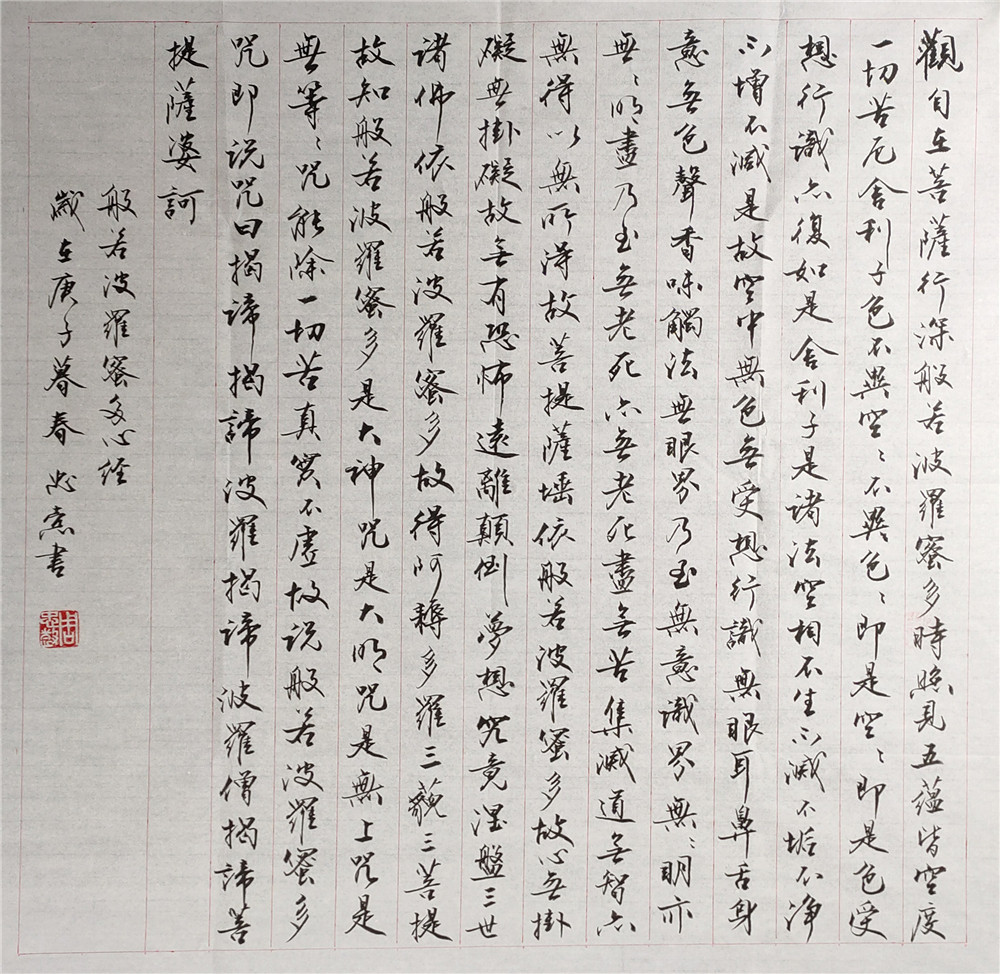 觀自在菩薩行深般若波羅蜜多時照見五蘊皆空度
一切苦厄舍利子色不異空〻不異色〻即是空〻即是色受
想行識亦復如是舍利子是諸法空相不生不滅不垢不净
不增不減是故空中無色無受想行識無眼耳鼻舌身
意無色聲香味觸法無眼界乃至無意識界無〻明亦
無〻明盡乃至無老死亦無老死盡無苦集滅道無智亦
無得以無所得故菩提薩埵依般若波羅蜜多故心無掛
礙無掛礙故無有恐怖遠離顛倒夢想究竟涅盤三世
諸佛依般若波羅蜜多故得阿耨多羅三藐三菩提
故知般若波羅蜜多是大神咒是大明咒是無上咒是
無等〻咒能除一切苦真實不虛故说般若波羅蜜多
咒即说咒曰揭諦揭諦波羅揭諦波羅僧揭諦菩
提薩婆訶
般若波羅蜜多心经
歲在庚子暮春忠憲書